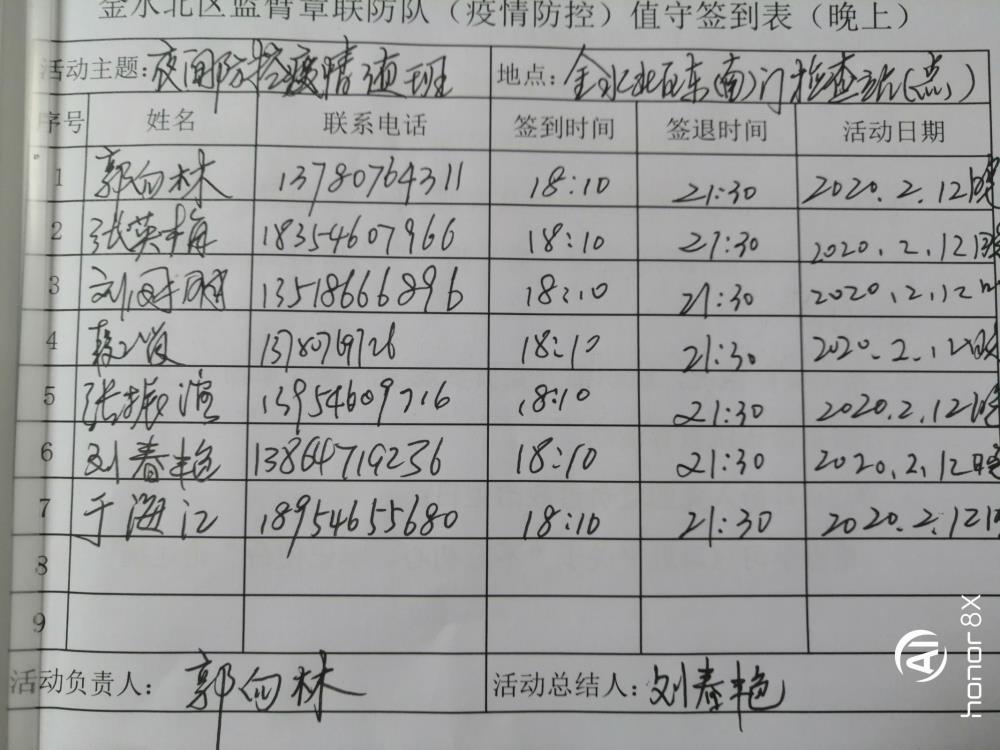 金水北区蓝臂章联防队（疫情防控）值守签到表（晚上）
活动主题：夜间防控疫情值班 地点：金水北区东(南)门检查站(点)
序号 姓名 联系电话 签到时间 签退时间 活动日期
1 郭向林 13780764311 18:10 21:30 2020.2.12日晚
2 张英梅 18354607966 18:10 21:30 2020.2.12日晚
3 13518666896 18:10 21:30 2020.2.12
4 18:10 21:30 2020.2.12
5 张振滨 13954609716 18:10 21:30 2020.2.12
6 刘春艳 13864719236 18:10 21:30 2020.2.12日晚
7 于海江 18954655680 18:10 21:30 2020.2.12日
8
9
活动负责人：郭向林 活动总结人：刘春艳
AI
honor 8X